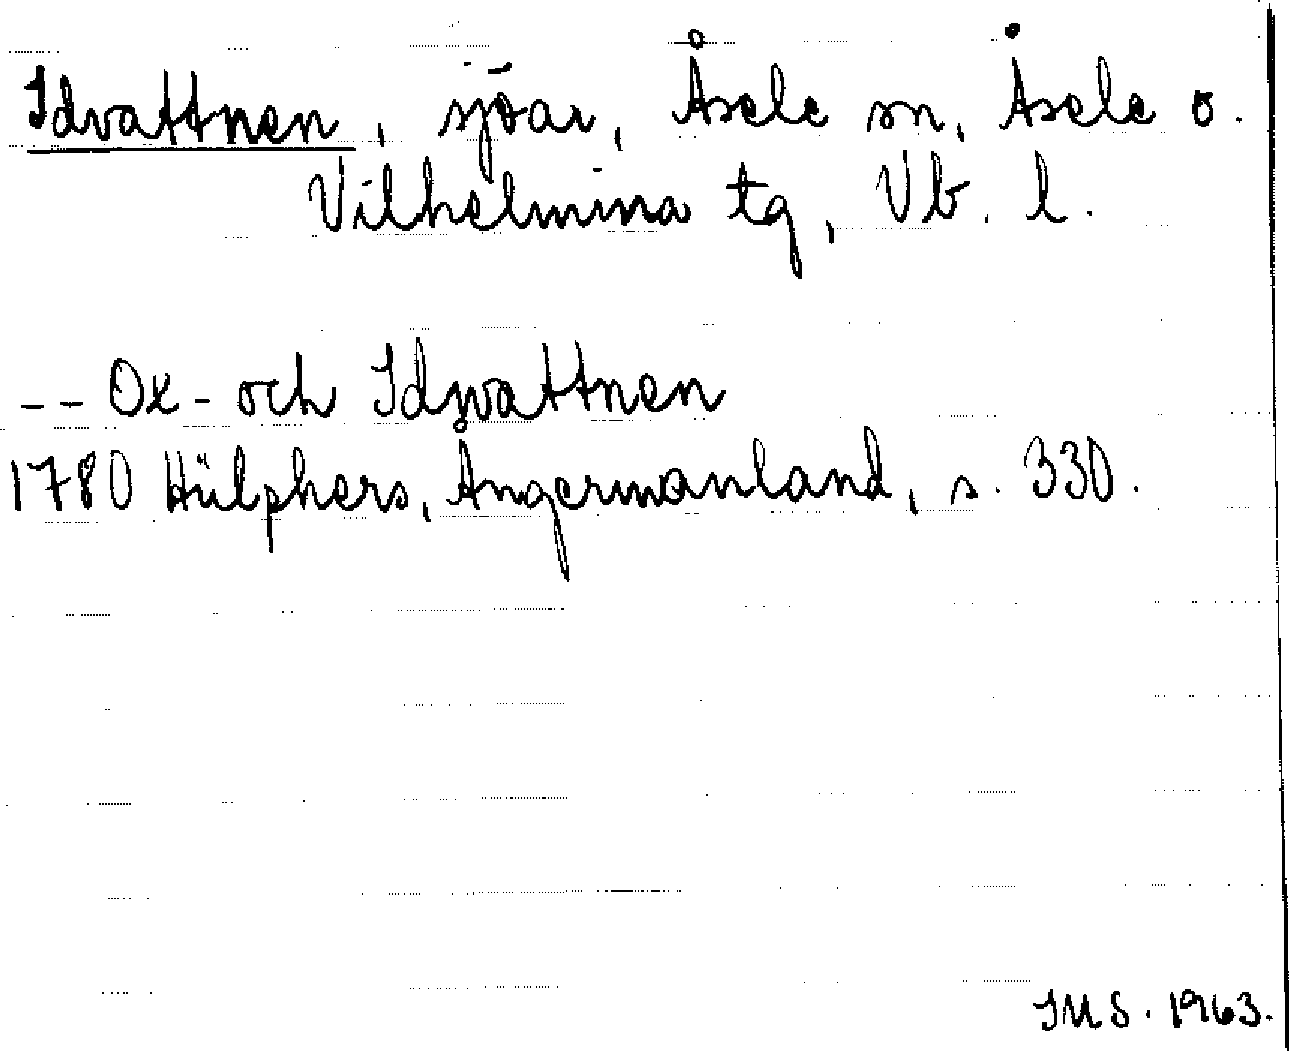 Idvattnen, sjöar, Åsele sn, Åsele o.
Vilhelmina tg, Vb. l.
-- Ox- och Idvattnen
1780 Hülphers, Ångermanland, s. 330.
IMS. 1963.